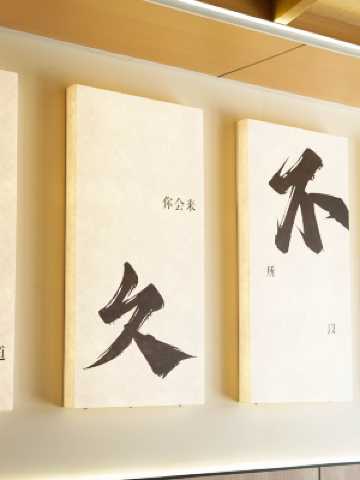 道
你会来
久
不
所
以